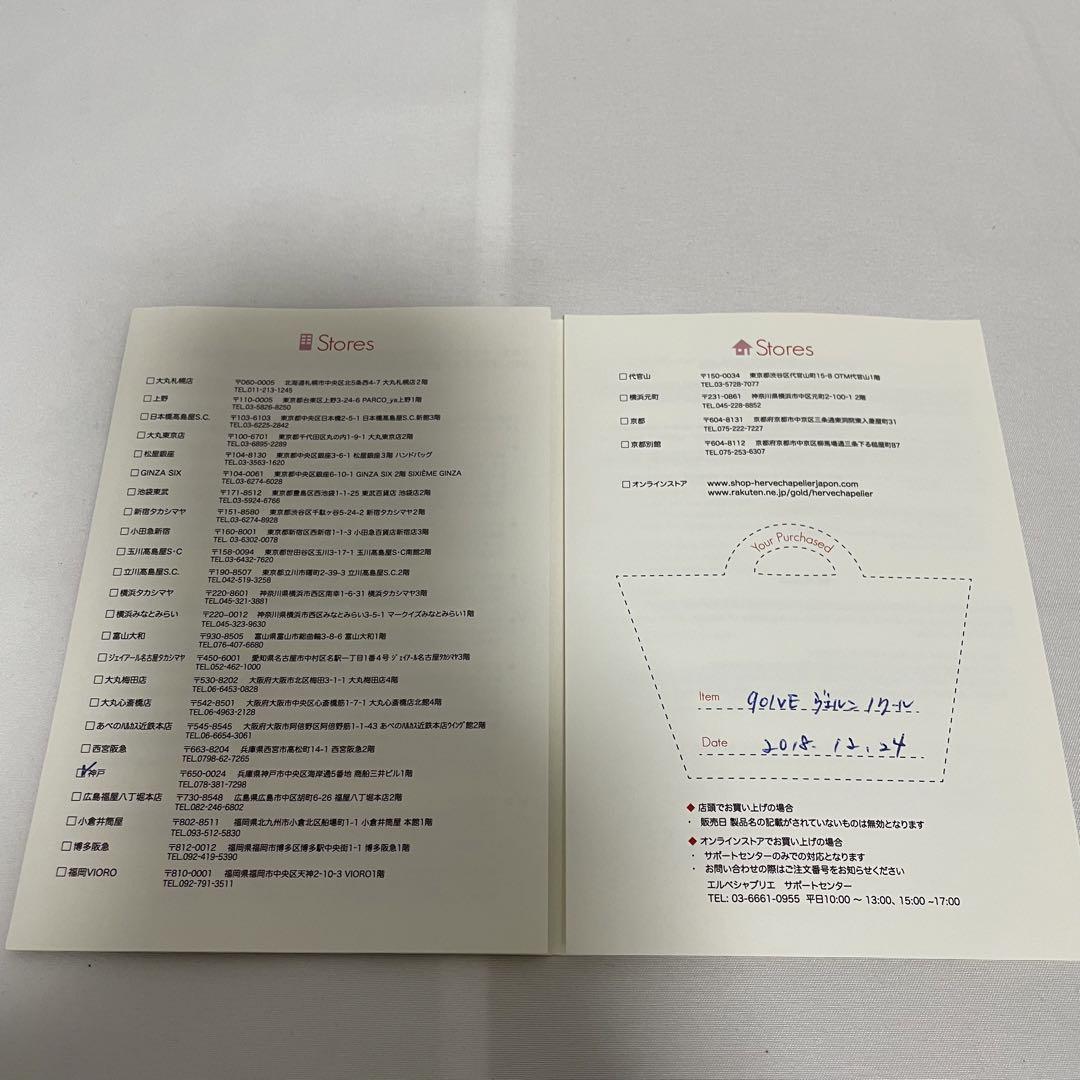 Stores
大丸札幌店 〒060-0005 北海道札幌市中央区北5条西4-7 大丸札幌店2階
TEL.011-213-1245
上野 〒110-0005 東京都台東区上野3-24-6 PARCO_ya上野1階
TEL.03-5826-8250
日本橋高島屋S.C. 〒103-6103 東京都中央区日本橋2-5-1 日本橋高島屋S.C.新館3階
TEL.03-6225-2842
大丸東京店 〒100-6701 東京都千代田区丸の内1-9-1 大丸東京店2階
TEL.03-6895-2289
松屋銀座 〒104-8130 東京都中央区銀座3-6-1 松屋銀座3階 ハンドバッグ
TEL.03-3563-1620
GINZA SIX 〒104-0061 東京都中央区銀座6-10-1 GINZA SIX 2階 SIXIÈME GINZA
TEL.03-6274-6028
池袋東武 〒171-8512 東京都豊島区西池袋1-1-25 東武百貨店 池袋店2階
TEL.03-5924-6766
新宿タカシマヤ 〒151-8580 東京都渋谷区千駄ヶ谷5-24-2 新宿タカシマヤ2階
TEL.03-6274-8928
小田急新宿 〒160-8001 東京都新宿区西新宿1-1-3 小田急百貨店新宿店3階
TEL.03-6302-0078
玉川高島屋S・C 〒158-0094 東京都世田谷区玉川3-17-1 玉川高島屋S・C南館2階
TEL.03-6432-7620
立川高島屋S.C. 〒190-8507 東京都立川市曙町2-39-3 立川高島屋S.C.2階
TEL.042-519-3258
横浜タカシマヤ 〒220-8601 神奈川県横浜市西区南幸1-6-31 横浜タカシマヤ3階
TEL.045-321-3881
横浜みなとみらい 〒220-0012 神奈川県横浜市西区みなとみらい3-5-1 マークイズみなとみらい1階
TEL.045-323-9630
富山大和 〒930-8505 富山県富山市総曲輪3-8-6 富山大和1階
TEL.076-407-6680
ジェイアール名古屋タカシマヤ 〒450-6001 愛知県名古屋市中村区名駅一丁目1番4号 ジェイアール名古屋タカシマヤ3階
TEL.052-462-1000
大丸梅田店 〒530-8202 大阪府大阪市北区梅田3-1-1 大丸梅田店4階
TEL.06-6453-0828
大丸心斎橋店 〒542-8501 大阪府大阪市中央区心斎橋筋1-7-1 大丸心斎橋店北館4階
TEL.06-4963-2128
あべのハルカス近鉄本店 〒545-8545 大阪府大阪市阿倍野区阿倍野筋1-1-43 あべのハルカス近鉄本店ウイング館2階
TEL.06-6654-3061
西宮阪急 〒663-8204 兵庫県西宮市高松町14-1 西宮阪急2階
TEL.0798-62-7265
神戸 〒650-0024 兵庫県神戸市中央区海岸通5番地 商船三井ビル1階
TEL.078-381-7298
広島福屋八丁堀本店 〒730-8548 広島県広島市中区胡町6-26 福屋八丁堀本店2階
TEL.082-246-6802
小倉井筒屋 〒802-8511 福岡県北九州市小倉北区船場町1-1 小倉井筒屋 本館1階
TEL.093-512-5830
博多阪急 〒812-0012 福岡県福岡市博多区博多駅中央街1-1 博多阪急1階
TEL.092-419-5390
福岡VIORO 〒810-0001 福岡県福岡市中央区天神2-10-3 VIORO1階
TEL.092-791-3511
Stores
代官山 〒150-0034 東京都渋谷区代官山町15-8 OTM代官山1階
TEL.03-5728-7077
横浜元町 〒231-0861 神奈川県横浜市中区元町2-100-1 2階
TEL.045-228-8852
京都 〒604-8131 京都府京都市中京区三条通東洞院東入菱屋町31
TEL.075-222-7227
京都別館 〒604-8112 京都府京都市中京区柳馬場通三条下る槌屋町87
TEL.075-253-6307
オンラインストア www.shop-hervechapelierjapon.com
www.rakuten.ne.jp/gold/hervechapelier
Your Purchased
Item 901VE ヴェルニ/ノワール
Date 2018. 12. 24
◆ 店頭でお買い上げの場合
・ 販売日 製品名の記載がされていないものは無効となります
◆ オンラインストアでお買い上げの場合
・ サポートセンターのみでの対応となります
・ お問い合わせの際はご注文番号をお知らせください
エルベシャプリエ サポートセンター
TEL: 03-6661-0955 平日10:00 ～ 13:00、15:00 ~17:00